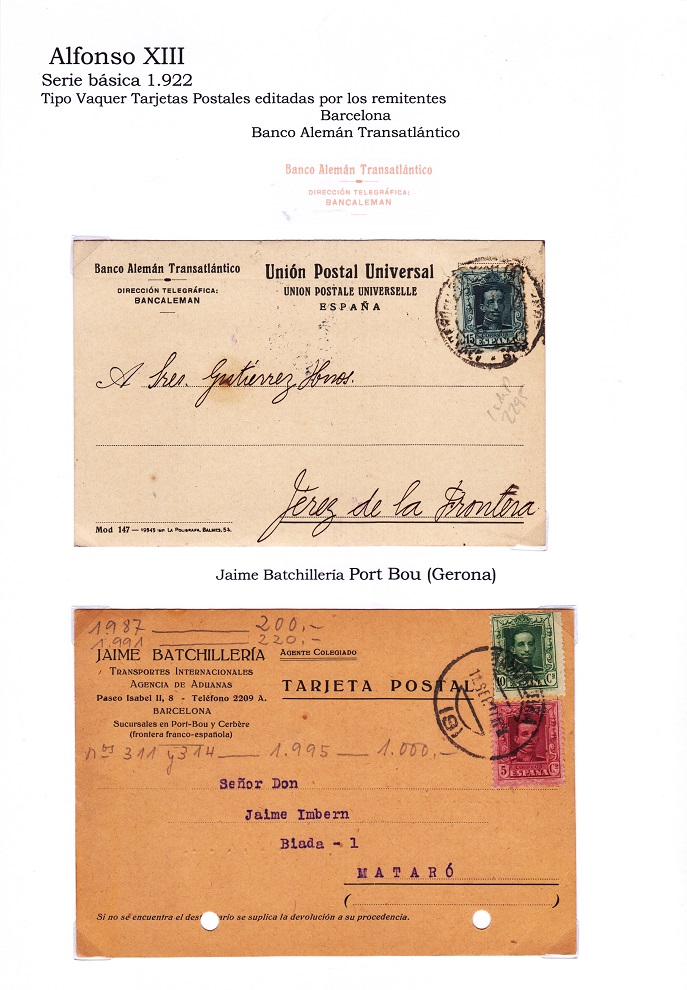 Alfonso XIII
Serie básica 1.922
Tipo Vaquer Tarjetas Postales editadas por los remitentes
Barcelona
Banco Alemán Transatlántico
Banco Alemán Transatlántico
DIRECCIÓN TELEGRÁFICA:
BANCALEMAN
Banco Alemán Transatlántico
DIRECCIÓN TELEGRÁFICA:
BANCALEMAN
Unión Postal Universal
UNION POSTALE UNIVERSELLE
ESPAÑA
15
ESPAÑA
A Sres. Gutiérrez Hnos.
2295
Jérez de la Frontera
Mod 147 — 19845 IMP. LA POLIGRAFA, BALMES, 54.
Jaime Batchillería Port Bou (Gerona)
1.987 200,-
1.991 220,-
JAIME BATCHILLERÍA
AGENTE COLEGIADO
TRANSPORTES INTERNACIONALES
AGENCIA DE ADUANAS
Paseo Isabel II, 8 - Teléfono 2209 A.
BARCELONA
Sucursales en Port-Bou y Cerbère
(frontera franco-española)
TARJETA POSTAL
10 Cs
ESPAÑA
5 Cs
ESPAÑA
(18)
nos 311 y 314 — 1.995 — 1.000,-
Señor Don
Jaime Imbern
Biada - 1
MATARÓ
( )
Si no se encuentra el dest ario se suplica la devolución a su procedencia.